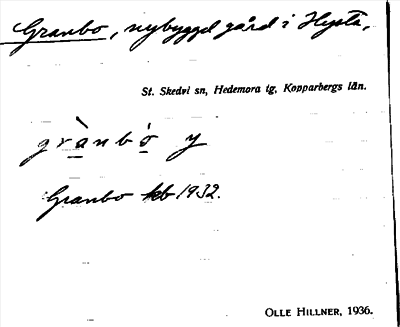 Granbo, nybyggd gård i Hysta,
St. Skedvi sn, Hedemora tg, Kopparbergs län.
grànbò y
Granbo kb 1932.
OLLE HILLNER, 1936.